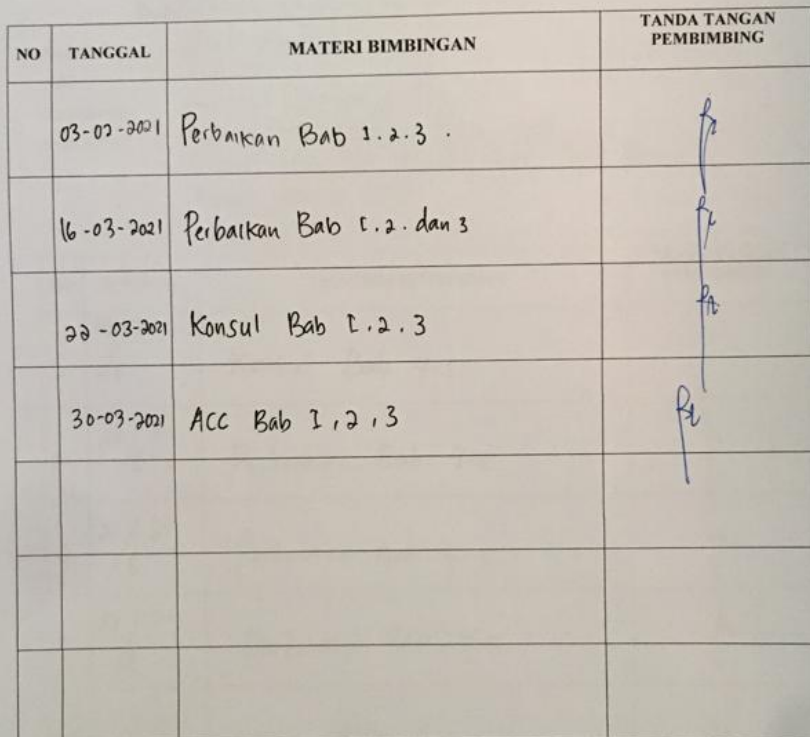 NO TANGGAL MATERI BIMBINGAN TANDA TANGAN PEMBIMBING
03-02-2021 Perbaikan Bab 1.2.3 .
16-03-2021 Perbaikan Bab 1.2. dan 3
22-03-2021 Konsul Bab 1.2.3
30-03-2021 ACC Bab 1,2,3